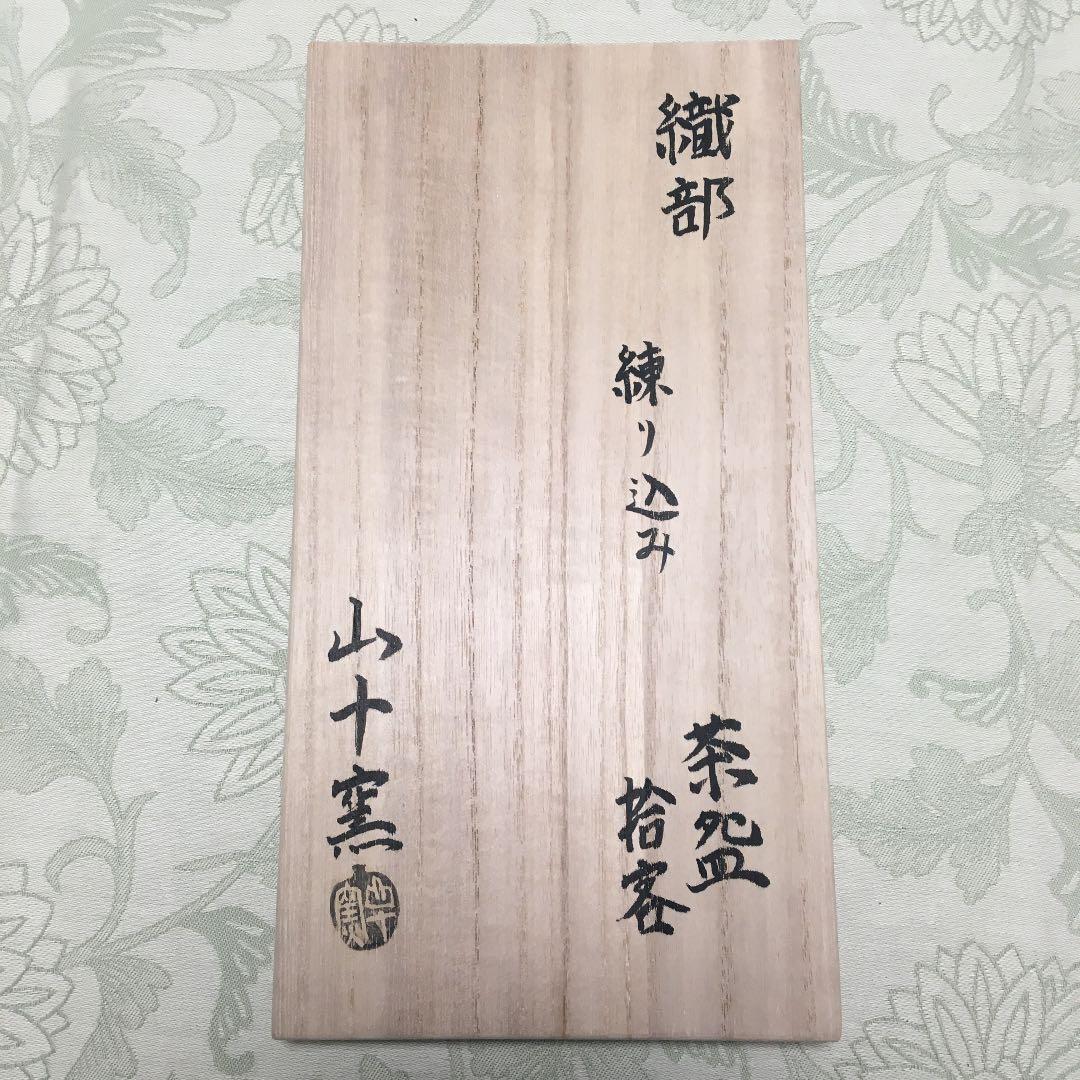 織部
練り込み
茶盌
拾客
山十窯
山十窯